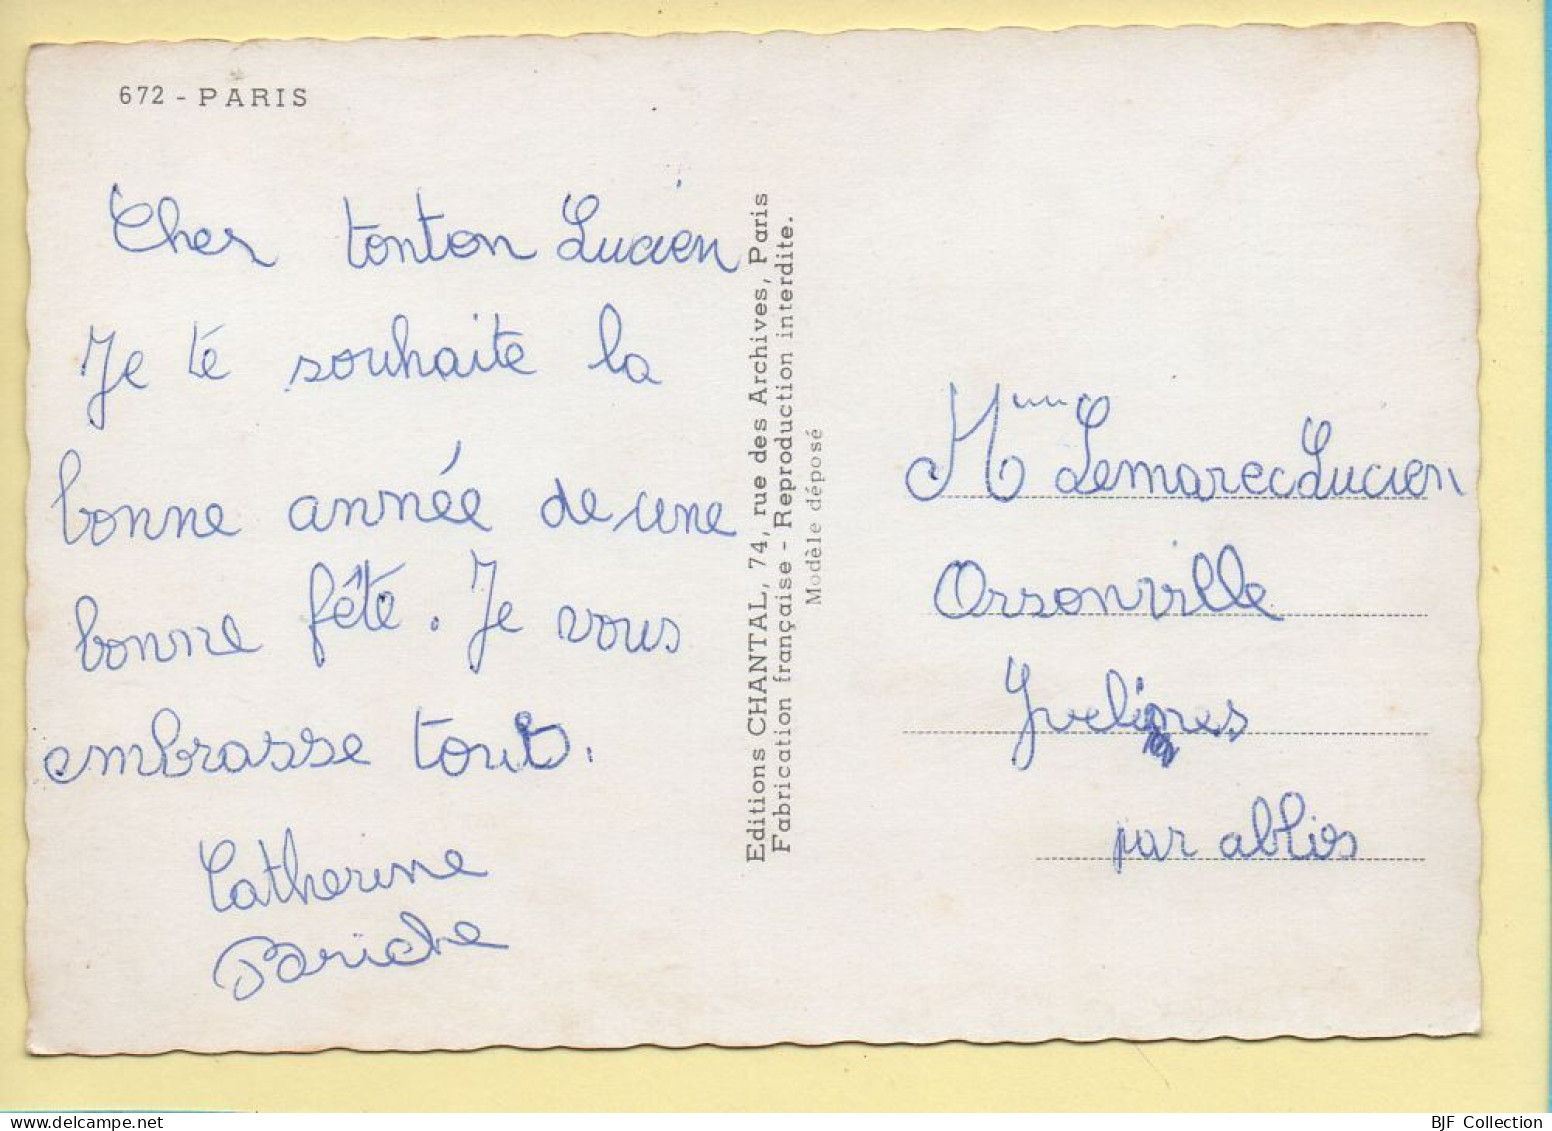 672 - PARIS
Cher tonton Lucien
Je te souhaite la
bonne année de une
bonne fête. Je vous
embrasse tous.
Catherine
Pariche
Editions CHANTAL, 74, rue des Archives, Paris
Fabrication française - Reproduction interdite.
Modèle déposé
Mme Lemarec Lucien
Orsonville
Yvelines
par ablis
BJF Collection